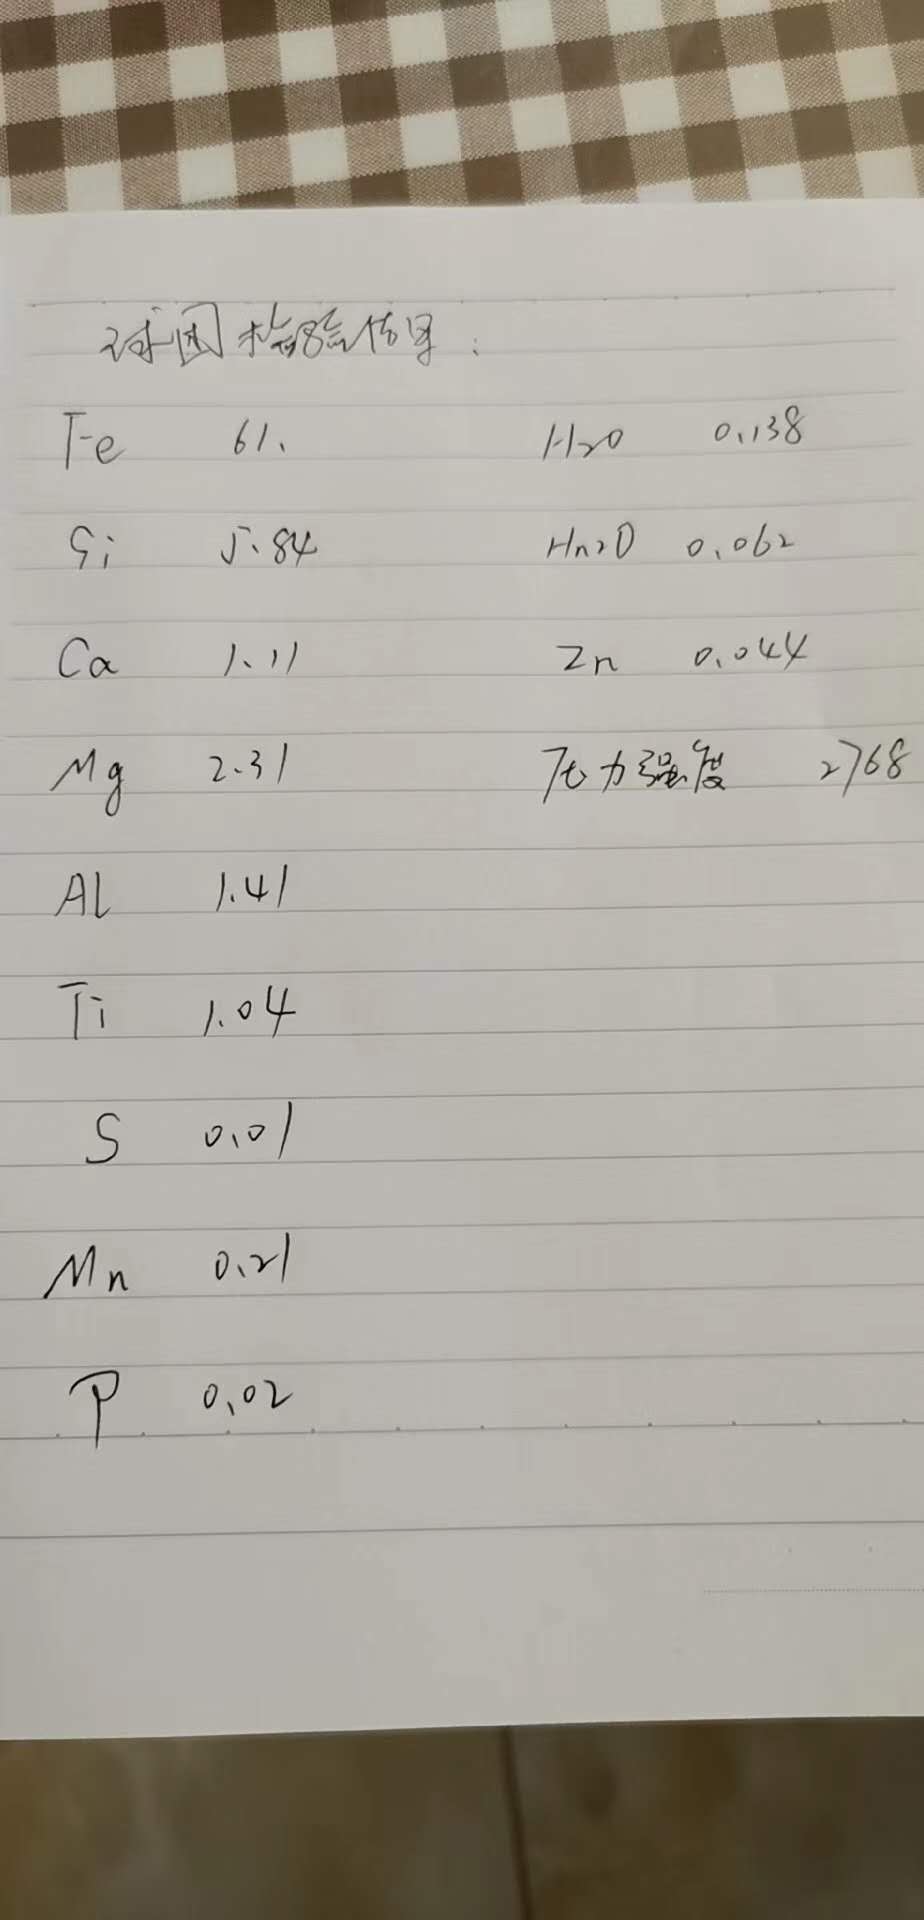 球团检验信息：
Fe 61. H2O 0.138
Si 5.84 Hn2O 0.062
Ca 1.11 Zn 0.044
Mg 2.31 压力强度 2768
Al 1.41
Ti 1.04
S 0.01
Mn 0.21
P 0.02